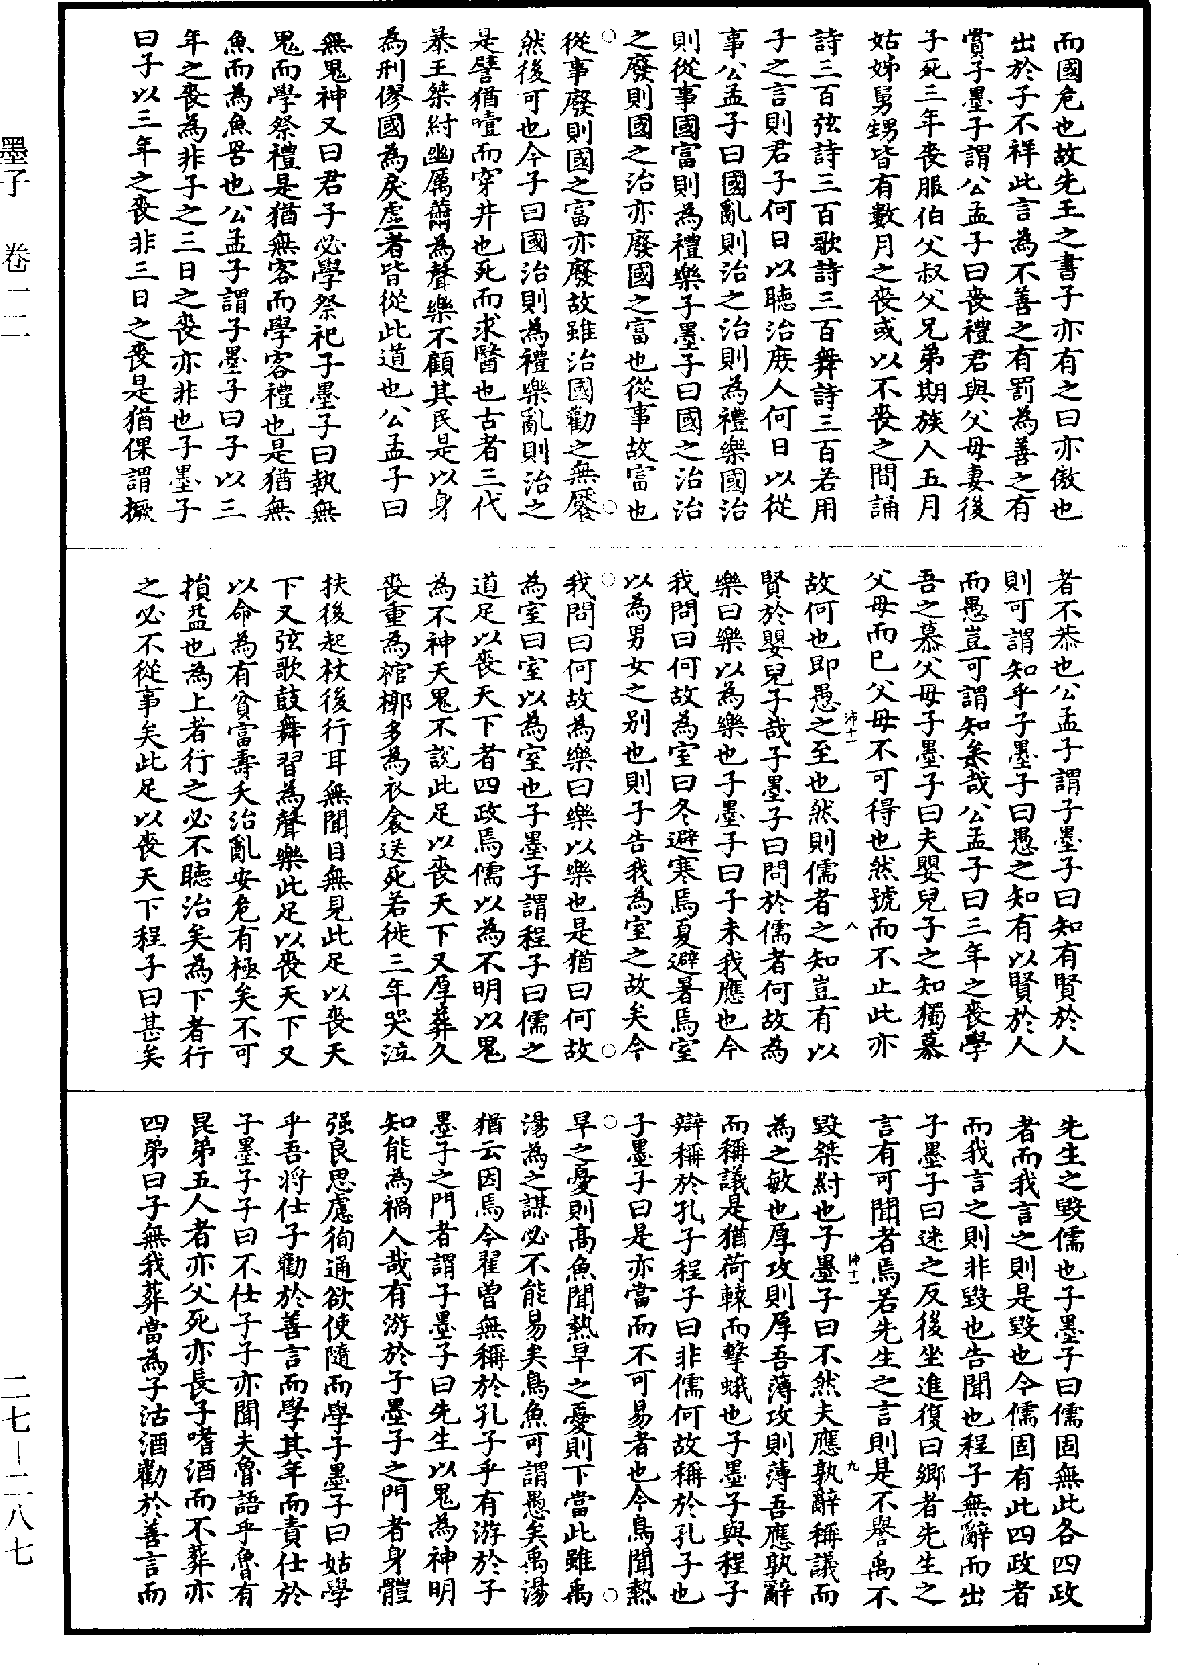 而國危也故先王之書子亦有之曰亦傲也
出於子不祥此言為不善之有罰為善之有
賞子墨子謂公孟子曰喪禮君與父母妻後
子死三年喪服伯父叔父兄弟期族人五月
姑姊舅甥皆有數月之喪或以不喪之間誦
詩三百弦詩三百歌詩三百舞詩三百若用
子之言則君子何日以聽治庶人何日以從
事公孟子曰國亂則治之治則為禮樂國治
則從事國富則為禮樂子墨子曰國之治治
之廢則國之治亦廢國之富也從事故富也
從事廢則國之富亦廢故雖治國勸之無饜
然後可也今子曰國治則為禮樂亂則治之
是譬猶噎而穿井也死而求醫也古者三代
暴王桀紂幽厲薾為聲樂不顧其民是以身
為刑僇國為戾虛者皆從此道也公孟子曰
無鬼神又曰君子必學祭祀子墨子曰執無
鬼而學祭禮是猶無客而學客禮也是猶無
魚而為魚罟也公孟子謂子墨子曰子以三
年之喪為非子之三日之喪亦非也子墨子
曰子以三年之喪非三日之喪是猶倮謂撅
者不恭也公孟子謂子墨子曰知有賢於人
則可謂知乎子墨子曰愚之知有以賢於人
而愚豈可謂知矣哉公孟子曰三年之喪學
吾之慕父母子墨子曰夫嬰兒子之知獨慕
父母而已父母不可得也然號而不止此亦
沛十一 八
故何也即愚之至也然則儒者之知豈有以
賢於嬰兒子哉子墨子曰問於儒者何故為
樂曰樂以為樂也子墨子曰子未我應也今
我問曰何故為室曰冬避寒焉夏避暑焉室
以為男女之別也則子告我為室之故矣今
我問曰何故為樂曰樂以樂也是猶曰何故
為室曰室以為室也子墨子謂程子曰儒之
道足以喪天下者四政焉儒以為不明以鬼
為不神天鬼不說此足以喪天下又厚葬久
喪重為棺槨多為衣衾送死若徙三年哭泣
扶後起杖後行耳無聞目無見此足以喪天
下又弦歌鼓舞習為聲樂此足以喪天下又
以命為有貧富壽夭治亂安危有極矣不可
損益也為上者行之必不聽治矣為下者行
之必不從事矣此足以喪天下程子曰甚矣
先生之毀儒也子墨子曰儒固無此各四政
者而我言之則是毀也今儒固有此四政者
而我言之則非毀也告聞也程子無辭而出
子墨子曰迷之反後坐進復曰鄉者先生之
言有可聞者焉若先生之言則是不譽禹不
沛十一 九
毀桀紂也子墨子曰不然夫應孰辭稱議而
為之敏也厚攻則厚吾薄攻則薄吾應孰辭
而稱議是猶荷轅而擊蛾也子墨子與程子
辯稱於孔子程子曰非儒何故稱於孔子也
子墨子曰是亦當而不可易者也今鳥聞熱
旱之憂則高魚聞熱旱之憂則下當此雖禹
湯為之謀必不能易矣鳥魚可謂愚矣禹湯
猶云因焉今翟曾無稱於孔子乎有游於子
墨子之門者謂子墨子曰先生以鬼為神明
知能為禍人哉有游於子墨子之門者身體
强良思慮徇通欲使隨而學子墨子曰姑學
乎吾將仕子勸於善言而學其年而責仕於
子墨子子曰不仕子子亦聞夫魯語乎魯有
昆弟五人者亦父死亦長子嗜酒而不葬亦
四弟曰子無我葬當為子沽酒勸於善言而
墨子 卷一二
二七—二八七